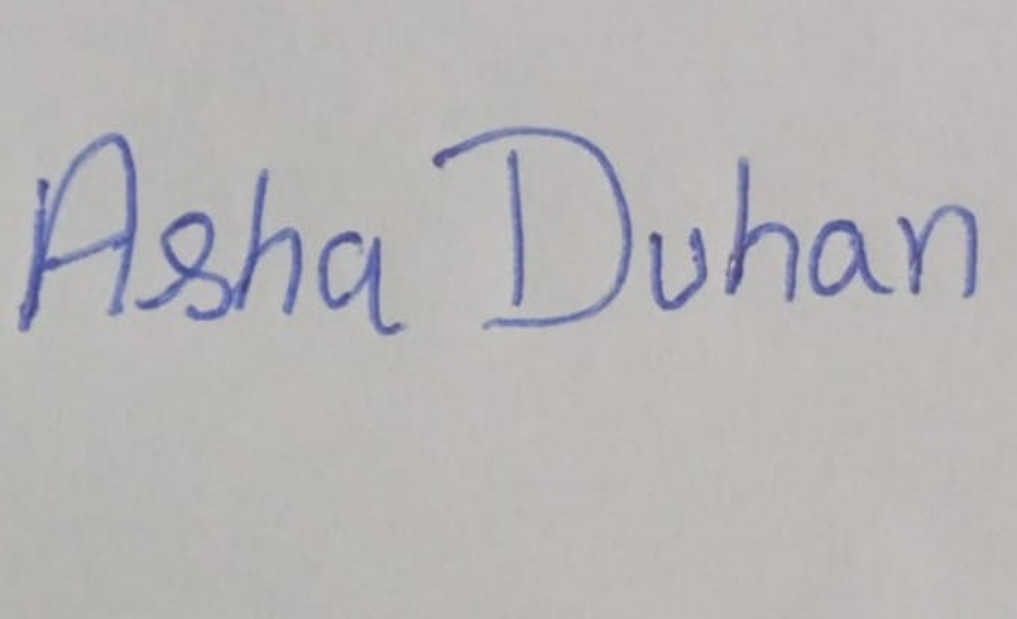 Asha Duhan